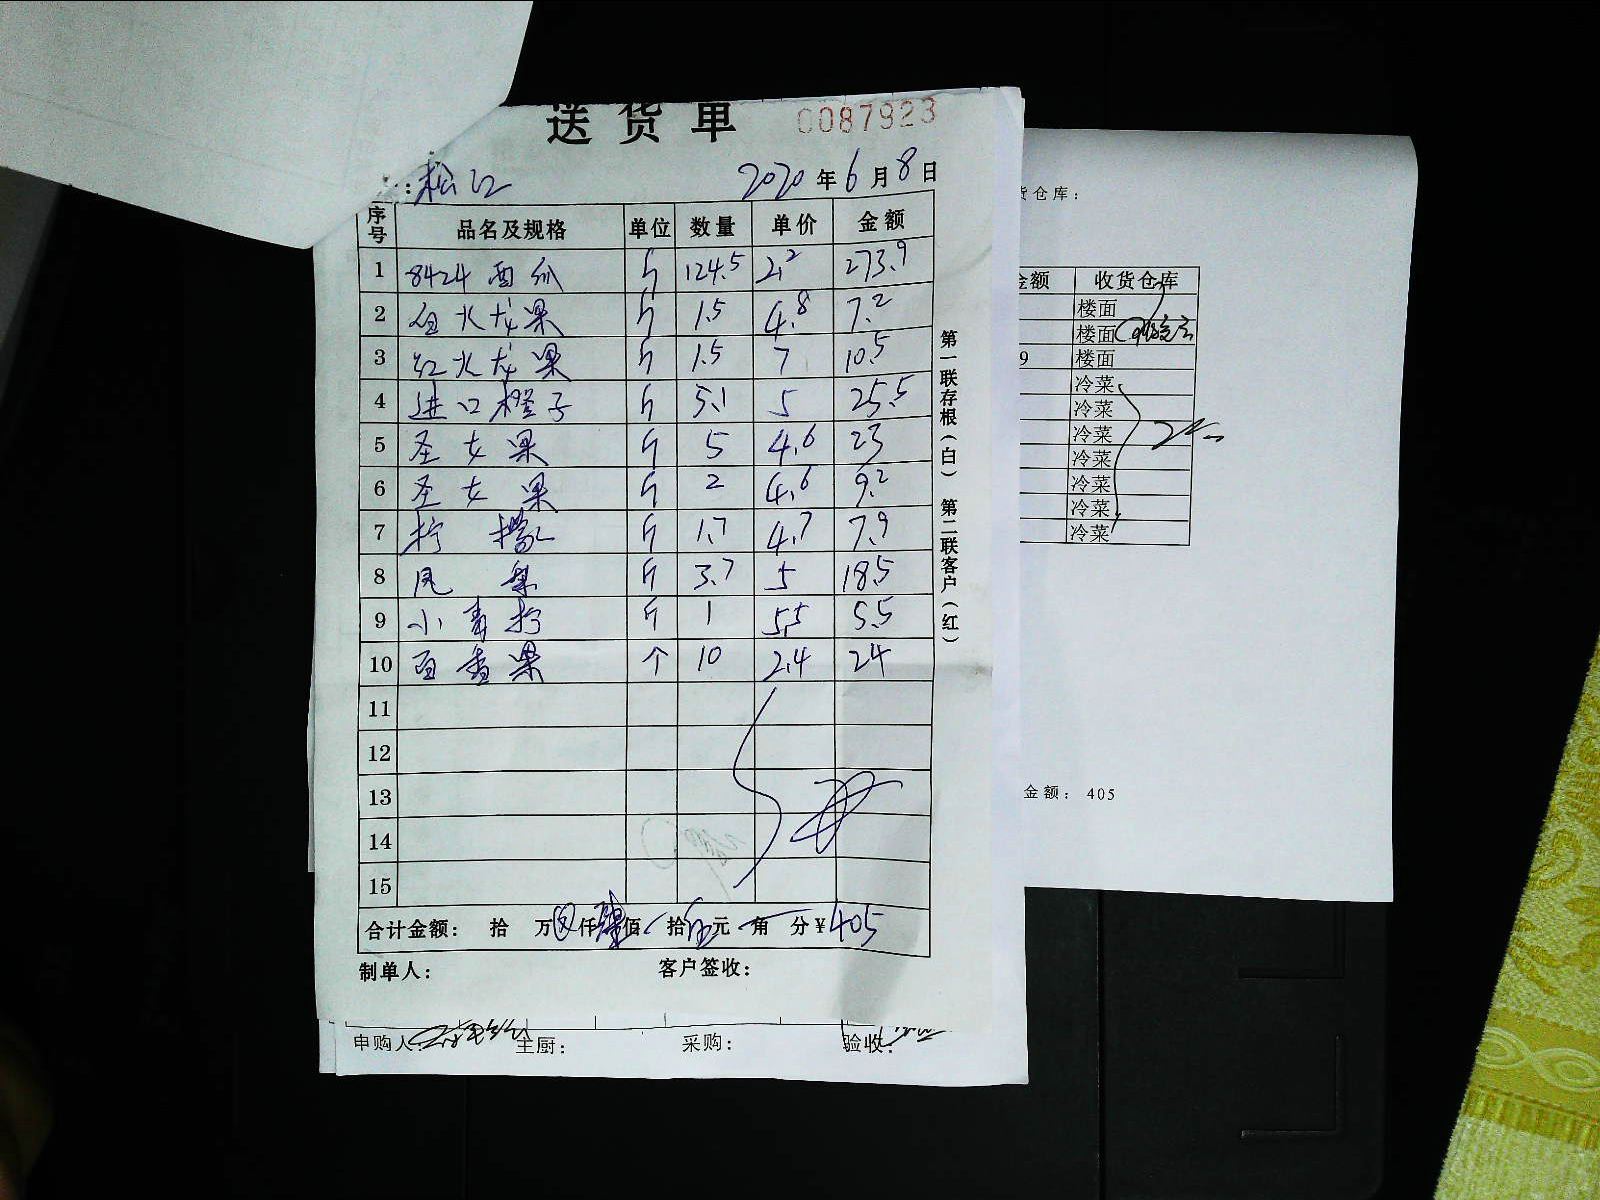 送货单 0087923
：松江 2020年6月8日
序号 品名及规格 单位 数量 单价 金额
1 8424西瓜 斤 124.5 2.2 273.9
2 白火龙果 斤 1.5 4.8 7.2
3 红火龙果 斤 1.5 7 10.5
4 进口橙子 斤 5.1 5 25.5
5 圣女果 斤 5 4.6 23
6 圣女果 斤 2 4.6 9.2
7 柠檬 斤 1.7 4.7 7.9
8 凤梨 斤 3.7 5 18.5
9 小青柠 斤 1 5.5 5.5
10 百香果 个 10 2.4 24
11
12
13
14
15
合计金额： 拾 万 仟肆佰 拾伍元 角 分¥405
制单人： 客户签收：
第一联存根（白） 第二联客户（红）
申购人 主厨： 采购： 验收：
货仓库：
金额 收货仓库
楼面
楼面
9 楼面
冷菜
冷菜
冷菜
冷菜
冷菜
冷菜
冷菜
金额： 405